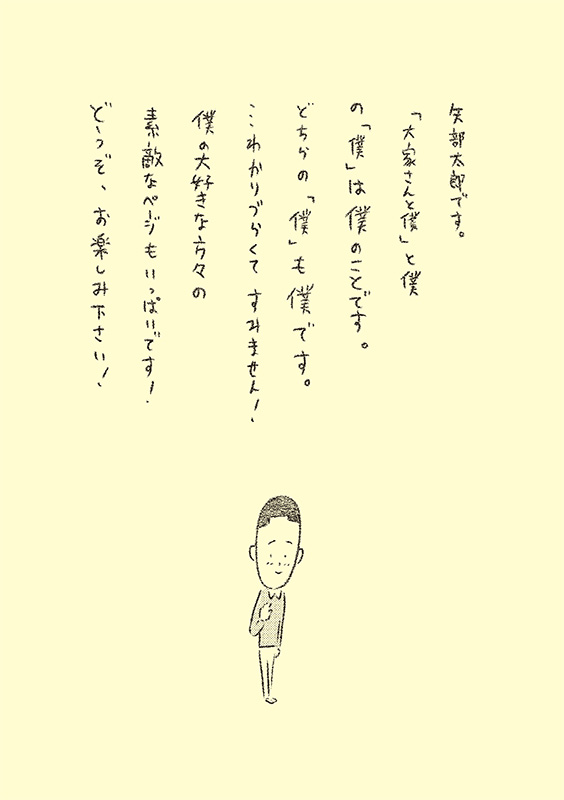 矢部太郎です。
「大家さんと僕」と僕
の「僕」は僕のことです。
どちらの「僕」も僕です。
…わかりづらくてすみません!
僕の大好きな方々の
素敵なページもいっぱいです!
どうぞ、お楽しみ下さい!